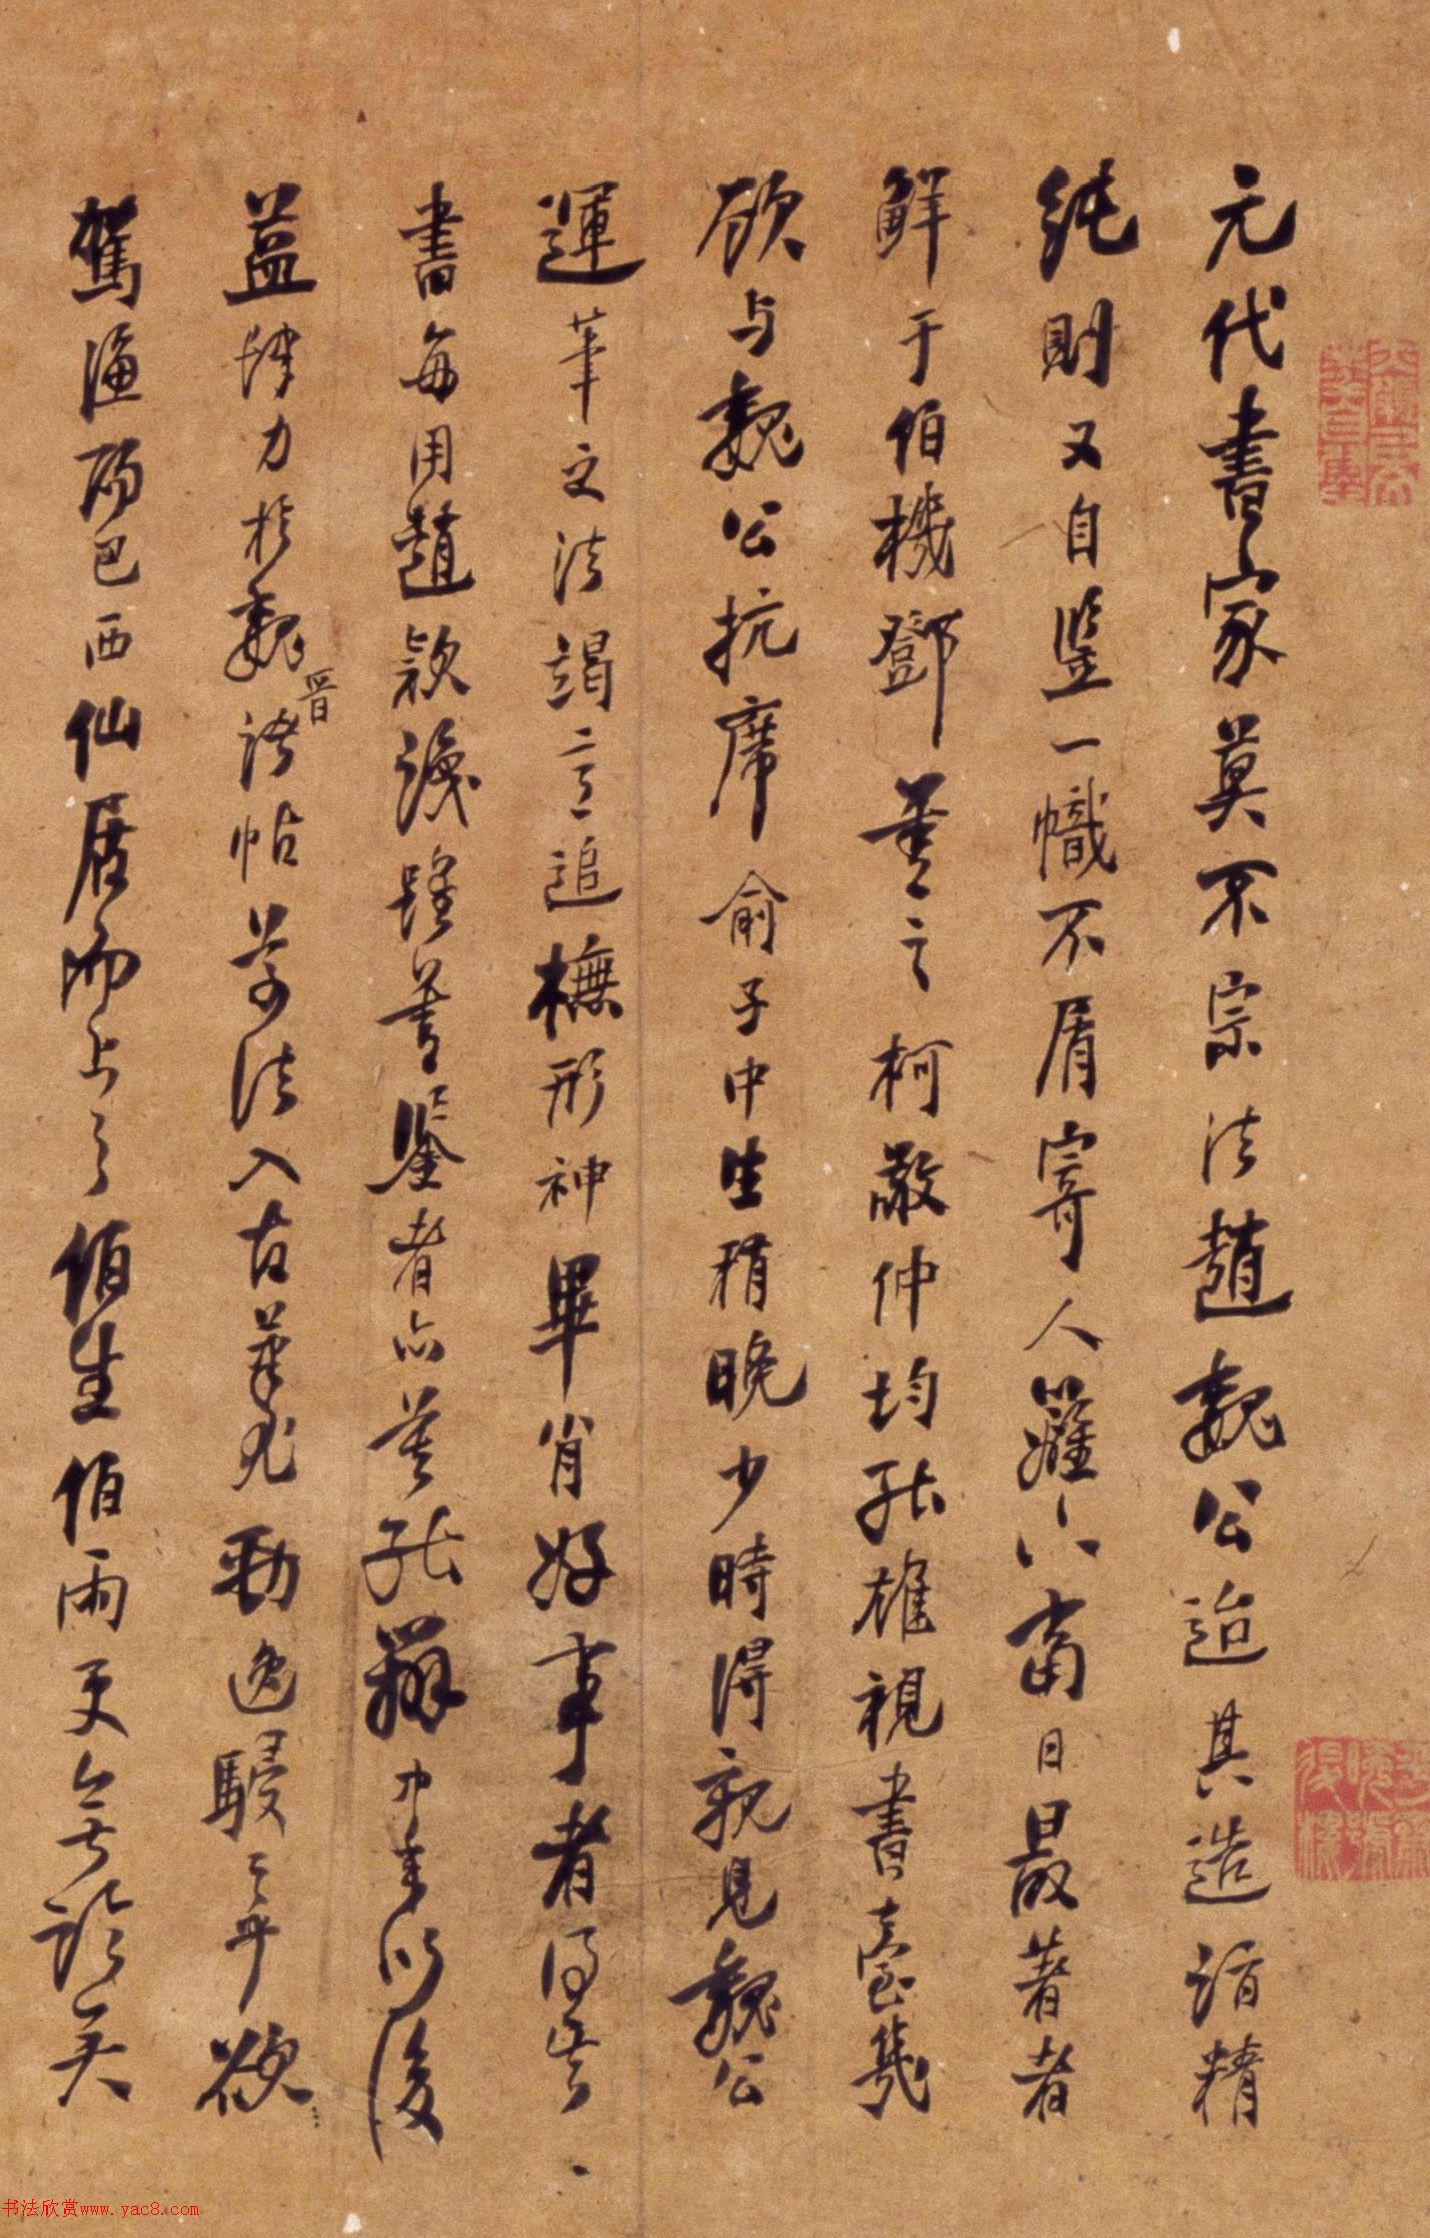 元代書家莫不宗法趙魏公迨其造詣精
純則又自竪一幟不屑寄人籬下當日最著者
鮮于伯機鄧善之柯敬仲均能雄視書臺幾
欲与魏公抗席俞子中生稍晚少時得親見魏公
運筆之法竭意追橅形神畢肖好事者得其
書每用趙款識雖善鑒者亦莫能辨中年以後
益肆力於魏晉法帖草法入古筆尤勁逸駸駸乎欲
駕漚波巴西仙居而上之伯生伯雨更無論矣
书法欣赏www.yac8.com